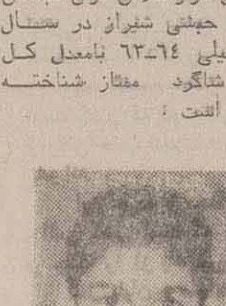 حبشی شفیران در سال
یلی ٦٤ـ٦٣ بامعدل کل
شاگرد ممتاز شناخته
است .